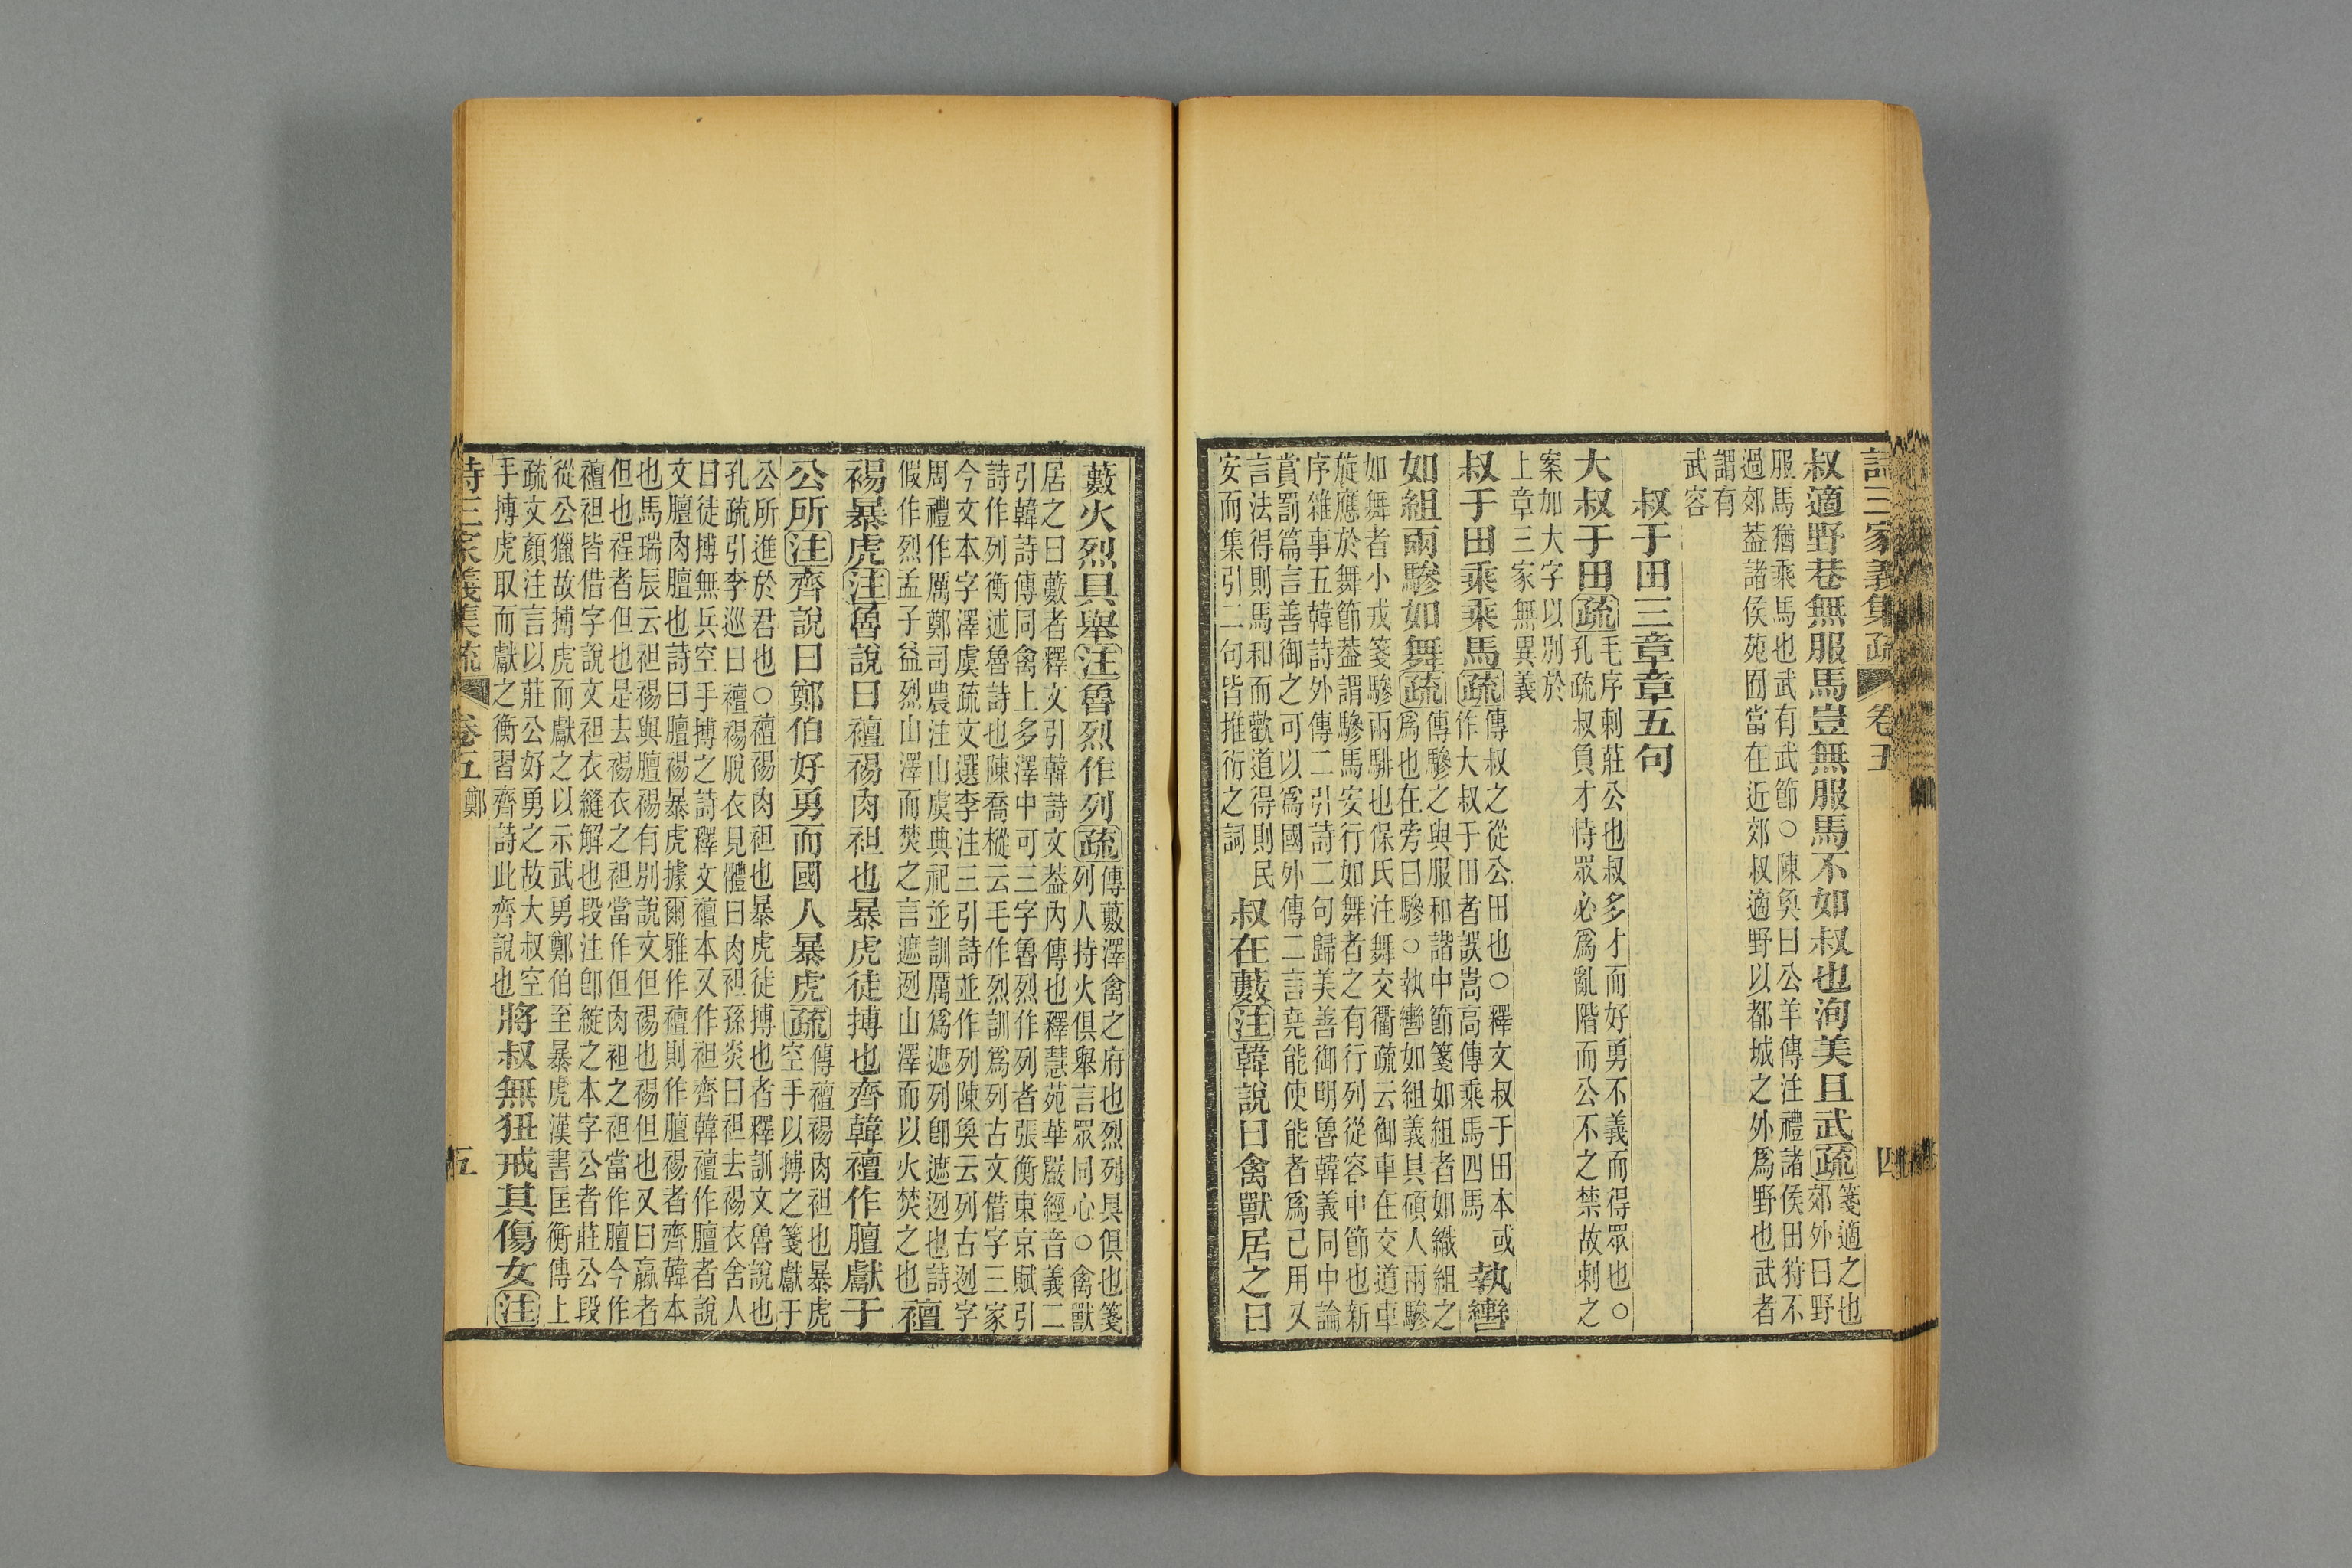 詩三家義集疏 卷五 四
叔適野巷無服馬豈無服馬不如叔也洵美且武疏箋適之也
郊外曰野
服馬猶乘馬也武有武節○陳奐曰公羊傳注禮諸侯田狩不
過郊葢諸侯苑囿當在近郊叔適野以都城之外爲野也武者
謂有
武容
叔于田三章章五句
大叔于田疏毛序刺莊公也叔多才而好勇不義而得眾也○
孔疏叔負才恃眾必爲亂階而公不之禁故刺之
案加大字以別於
上章三家無異義
叔于田乘乘馬疏傳叔之從公田也○釋文叔于田本或
作大叔于田者誤嵩高傳乘馬四馬
執轡
如組兩驂如舞疏傳驂之與服和諧中節箋如組者如織組之
爲也在旁曰驂○執轡如組義具碩人兩驂
如舞者小戎箋驂兩騑也保氏注舞交衢疏云御車在交道車
旋應於舞節葢謂驂馬安行如舞者之有行列從容中節也新
序雜事五韓詩外傳二引詩二句歸美善御明魯韓義同中論
賞罰篇言善御之可以爲國外傳二言堯能使能者爲己用又
言法得則馬和而歡道得則民
安而集引二句皆推衍之詞
叔在藪注韓說曰禽獸居之曰
藪火烈具舉注魯烈作列疏傳藪澤禽之府也烈列具俱也箋
列人持火俱舉言眾同心○禽獸
居之曰藪者釋文引韓詩文葢內傳也釋慧苑華嚴經音義二
引韓詩傳同禽上多澤中可三字魯烈作列者張衡東京賦引
詩作列衡述魯詩也陳喬樅云毛作烈訓爲列古文借字三家
今文本字澤虞疏文選李注三引詩並作列陳奐云列古迾字
周禮作厲鄭司農注山虞典祀並訓厲爲遮列卽遮迾也詩
假作烈孟子益烈山澤而焚之言遮迾山澤而以火焚之也
襢
裼暴虎注魯說曰襢裼肉袒也暴虎徒搏也齊韓襢作膻獻于
公所注齊說曰鄭伯好勇而國人暴虎疏傳襢裼肉袒也暴虎
空手以搏之箋獻于
公所進於君也○襢裼肉袒也暴虎徒搏也者釋訓文魯說也
孔疏引李巡曰襢裼脫衣見體曰肉袒孫炎曰袒去裼衣舍人
曰徒搏無兵空手搏之詩釋文襢本又作袒齊韓襢作膻者說
文膻肉膻也詩曰膻裼暴虎據爾雅作襢則作膻裼者齊韓本
也馬瑞辰云袒裼與膻裼有別說文但裼也裼但也又曰臝者
但也裎者但也是去裼衣之袒當作但肉袒之袒當作膻今作
襢袒皆借字說文袒衣縫解也段注卽綻之本字公者莊公段
從公獵故搏虎而獻之以示武勇鄭伯至暴虎漢書匡衡傳上
疏文顏注言以莊公好勇之故大叔空
手搏虎取而獻之衡習齊詩此齊說也
將叔無狃戒其傷女注
詩三家義集疏 卷五 鄭 五